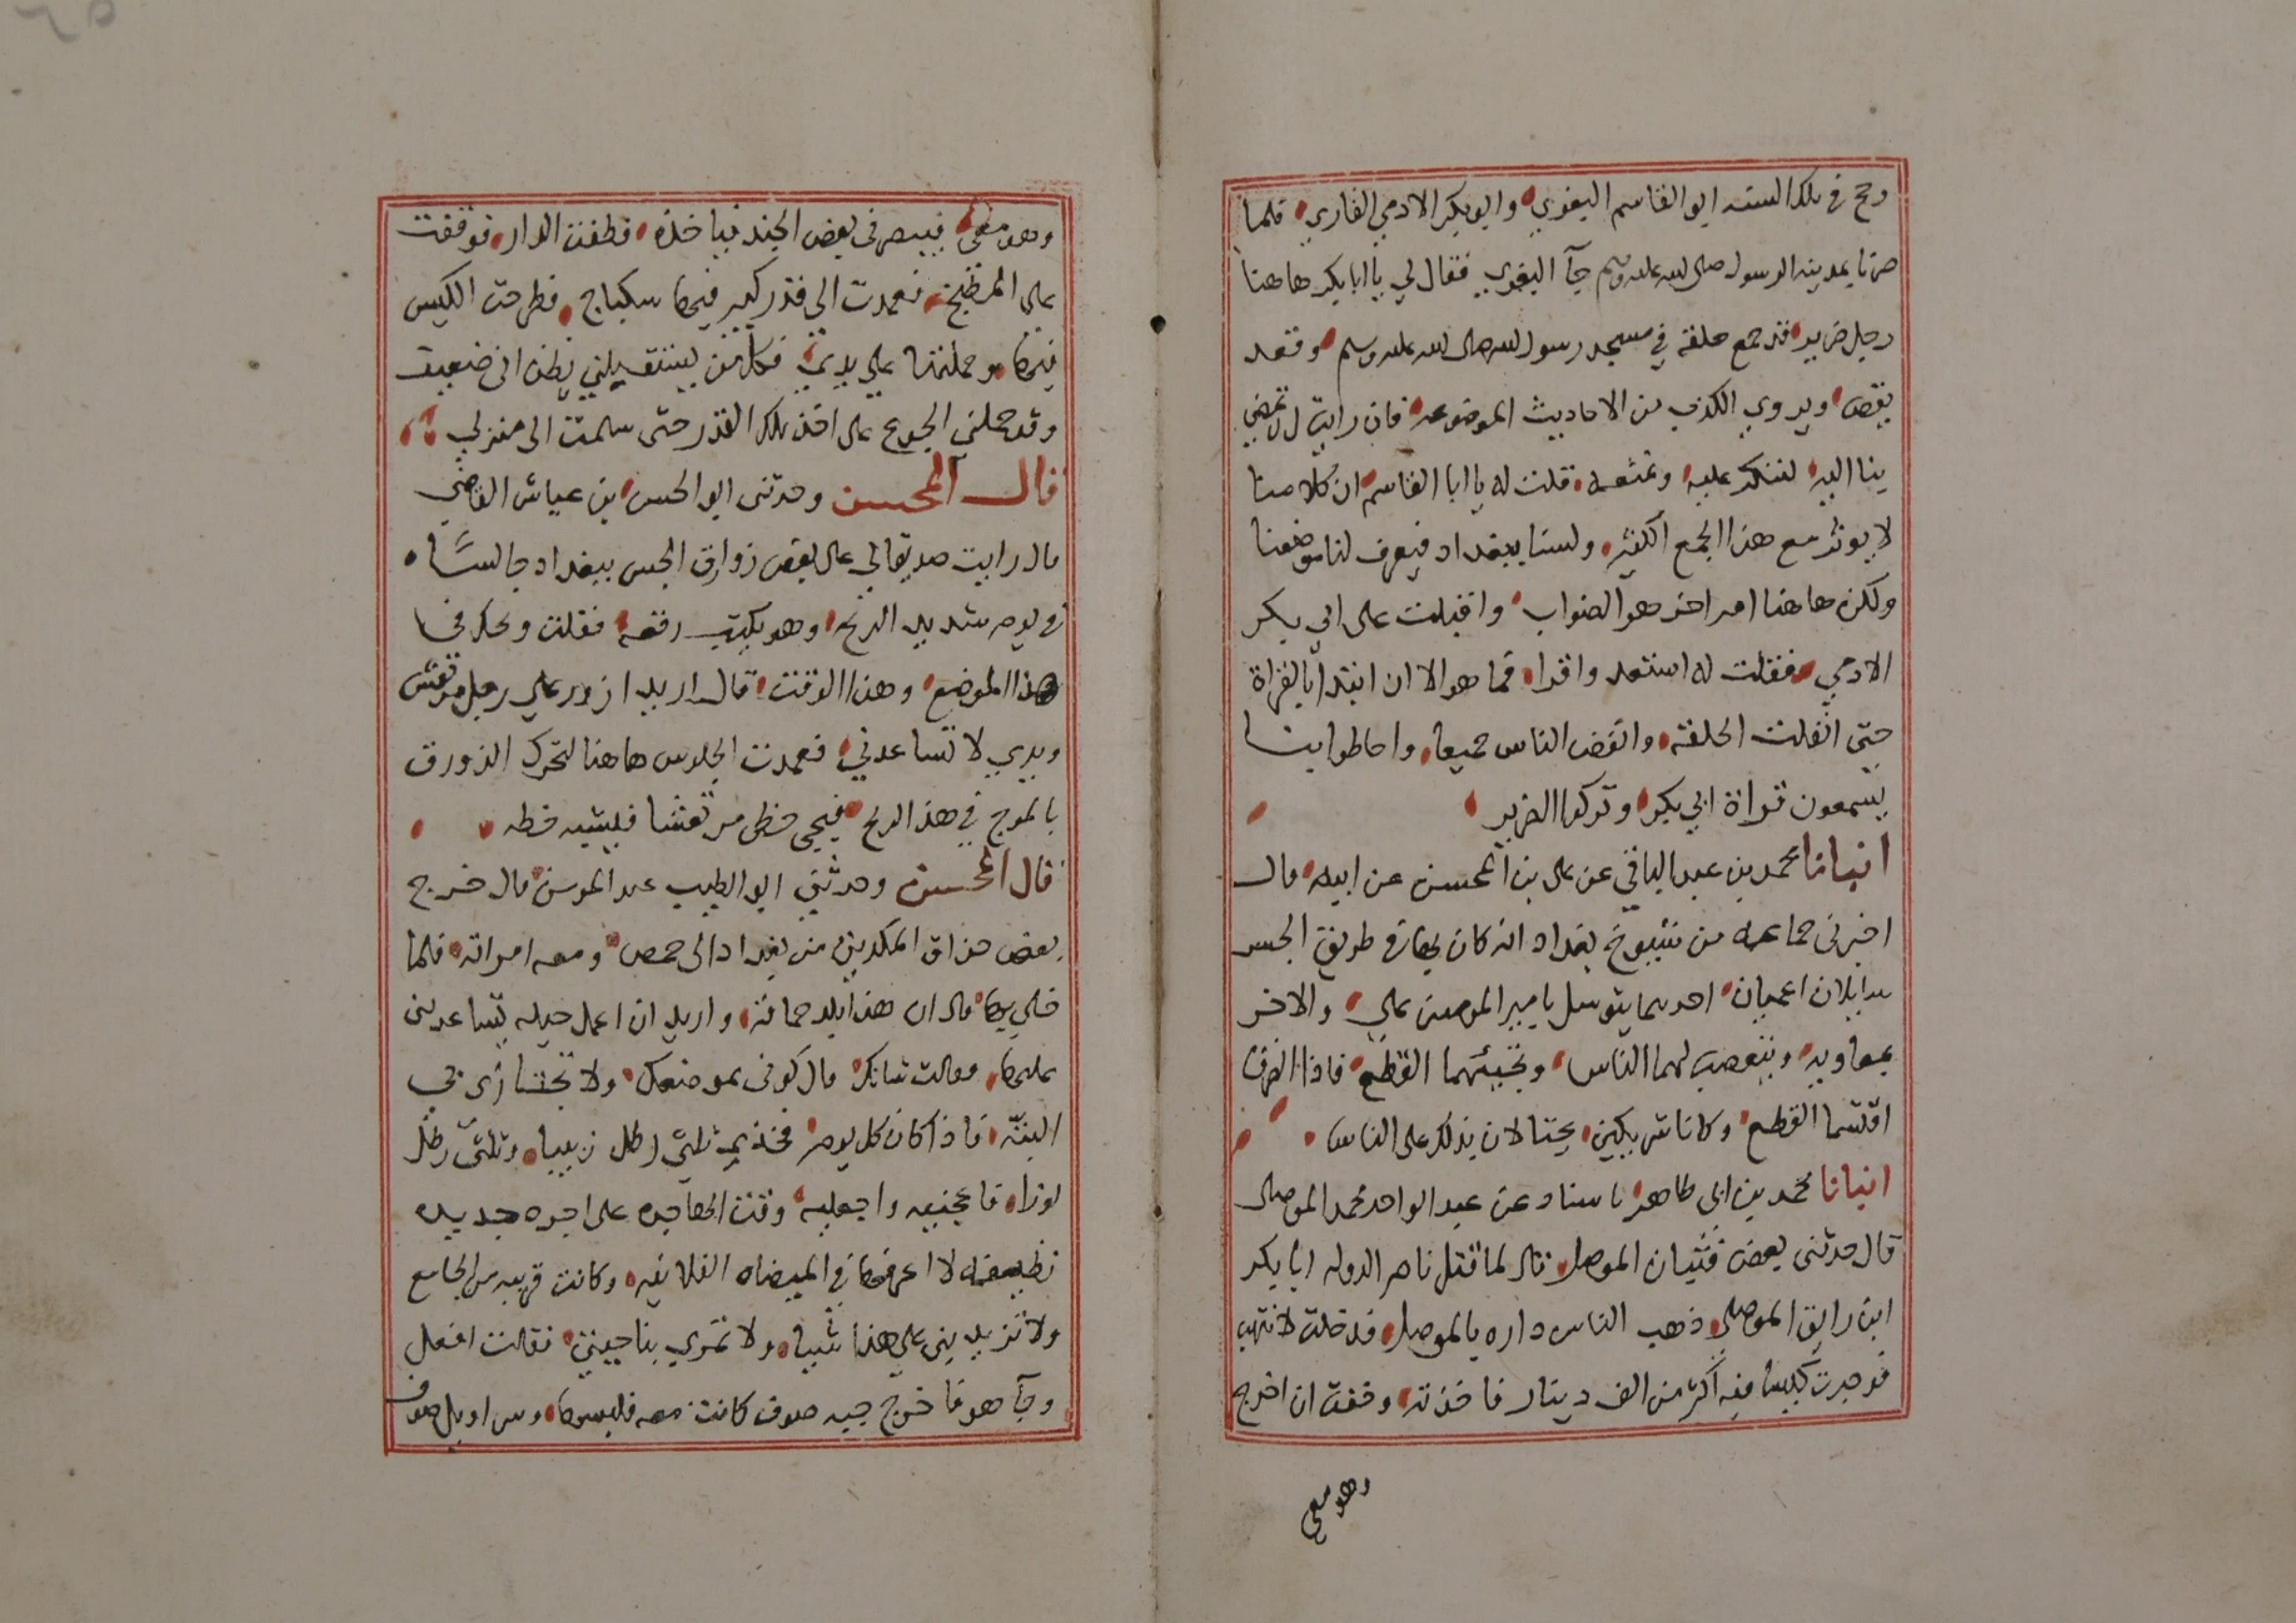 وحج في تلك السنه ابو القاسم البغوي وابو بكر الادمي القاري فلما
صرنا بمدينه الرسول صلى الله عليه وسلم جآ البغوي فقال لي يا ابا بكر هاهنا
رجل ضرير قد جمع حلقه في مسجد رسول الله صلى الله عليه وسلم وقعد
يقص ويروي الكذب من الاحاديث الموضوعه فان رايت ان تمضي
بنا اليه لننكر عليه ونمنعه فقلت له يا ابا القاسم ان كلامنا
لا يوثر مع هذا الجمع الكثير ولسنا ببغداد فيعرف لنا موضعنا
ولكن هاهنا امر اخر هو الصواب واقبلت على ابي بكر
الادمي فقلت له استعد واقرا فما هو الا ان ابتدا بالقراة
حتى انفلت الحلقه وانفض الناس جميعا واحاطوا بنا
يسمعون قراة ابي بكر وتركوا الضرير
انبانا محمد بن عبد الباقي عن علي بن المحسن عن ابيه قال
اخبرني جماعه من شيوخ بغداد انه كان بها في طريق الجسر
سايلان اعميان احدهما يتوسل بامير المومنين علي والاخر
بمعاويه ويتعصب لهما الناس وتجيئهما القطع فاذا انصرفا
اقتسما القطع وكانا شريكين يحتالان بذلك على الناس
انبانا محمد بن ابي طاهر باسناد عن عبد الواحد محمد الموصلي
قال حدثني بعض فتيان الموصل قال لما قتل ناصر الدوله ابا بكر
ابن رايق الموصلي ذهب الناس داره بالموصل فدخلت لانهب
فوجدت كيسا فيه اكثر من الف دينار فاخذته وخفت ان اخرج
وهو معي
وهو معي فيبصرني بعض الجند فياخذه فطفت الدار فوقفت
على المطبخ فعمدت الى قدر كبير فيها سكباج فطرحت الكيس
فيها وحملتها على يدي فكل من يستقبلني يظن اني ضعيف
وقد حملني الجوع على اخذ تلك القدر حتى سلمت الى منزلي
قال المحسن وحدثني ابو الحسن بن عياش القاضي
قال رايت صديقا لي على بعض زوارق الجسر ببغداد جالسا
في يوم شديد الريح وهو يكتب رقعه فقلت ويحك في
هذا الموضع وهذا الوقت قال اريد ازور على رجل مرتعش
ويدي لا تساعدني فعمدت الجلوس هاهنا لتحرك الزورق
بالموج في هذه الريح فيجي خطي مرتعشا فيشبه خطه
قال المحسن وحدثني ابو الطيب عبد المومن قال خرج
بعض حذاق المكدين من بغداد الى حمص ومعه امراته فلما
حل بها قال ان هذا بلد حماقه واريد ان اعمل حيله تساعديني
عليها وقالت شانك قال كوني بموضعك ولا تجتازي بي
البته فاذا كان كل يوم فخذي ثلثي رطل زبيبا وثلثي رطل
لوزا فاعجنيه واجعليه وقت الهاجره على اجره جديده
نظيفه لا اعرفها في الميضاه الفلانيه وكانت قريبه من الجامع
ولا تزيديني على هذا شيا ولا تمري بناحيتي فقالت افعل
وجآ هو فاخرج جبه صوف كانت معه فلبسها وسراويل صوف